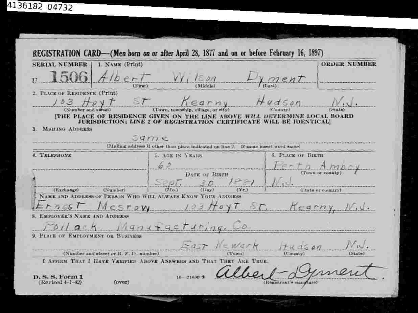 4136182 04732
REGISTRATION CARD—(Men born on or after April 28, 1877 and on or before February 16, 1897)
SERIAL NUMBER 1. NAME (Print) ORDER NUMBER
U 1506 Albert Wilson Dyment
(First) (Middle) (Last)
2. PLACE OF RESIDENCE (Print)
103 Hoyt St Kearny Hudson N.J.
(Number and street) (Town, township, village, or city) (County) (State)
[THE PLACE OF RESIDENCE GIVEN ON THE LINE ABOVE WILL DETERMINE LOCAL BOARD
JURISDICTION; LINE 2 OF REGISTRATION CERTIFICATE WILL BE IDENTICAL]
3. MAILING ADDRESS
Same
[Mailing address if other than place indicated on line 2. If same insert word same]
4. TELEPHONE 5. AGE IN YEARS 6. PLACE OF BIRTH
Perth Amboy
DATE OF BIRTH (Town or county)
Sept. 30 N.J.
(Exchange) (Number) (Mo.) (Day) (Yr.) (State or country)
7. NAME AND ADDRESS OF PERSON WHO WILL ALWAYS KNOW YOUR ADDRESS
Ernest Mesrow 103 Hoyt St. Kearny, N.J.
8. EMPLOYER'S NAME AND ADDRESS
Pollack Manufacturing Co.
9. PLACE OF EMPLOYMENT OR BUSINESS
East Newark Hudson N.J.
(Number and street or R. F. D. number) (Town) (County) (State)
I AFFIRM THAT I HAVE VERIFIED ABOVE ANSWERS AND THAT THEY ARE TRUE.
D. S. S. Form 1
(Revised 4-1-42) (over) Albert Dyment.
(Registrant's signature)